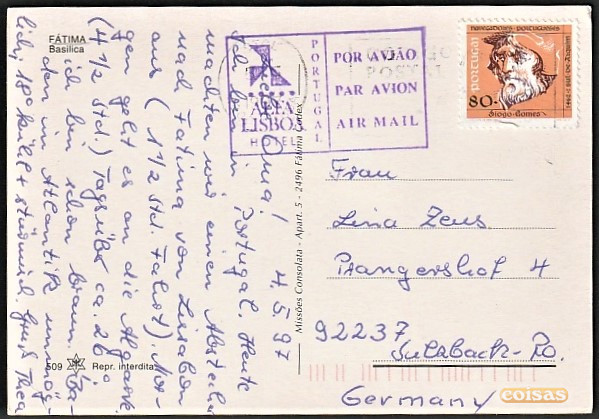 FÁTIMA
Basílica
4.5.97
Liebe Oma!
Ich bin in Portugal. Heute
machten wir einen Abstecher
nach Fatima von Lissabon
aus (1 1/2 Std. Fahrt). Mor-
gen geht es an die Algarve
(4 1/2 Std.) Tagsüber ca. 26°,
ich bin schon braun. Ba-
den im Atlantik unmög-
lich, 18° kühl + stürmisch. Gruß Thea
509
Repr. interdita
Missões Consolata - Apart. 5 - 2496 Fátima Codex
ALFA
LISBOA
HOTEL
PORTUGAL
POR AVIÃO
PAR AVION
AIR MAIL
NAVEGADORES PORTUGUESES
PORTUGAL
80.-
Diogo Gomes
Frau
Lina Zeus
Prangershof 4
92237
Sulzbach-Ro.
Germany
coisas